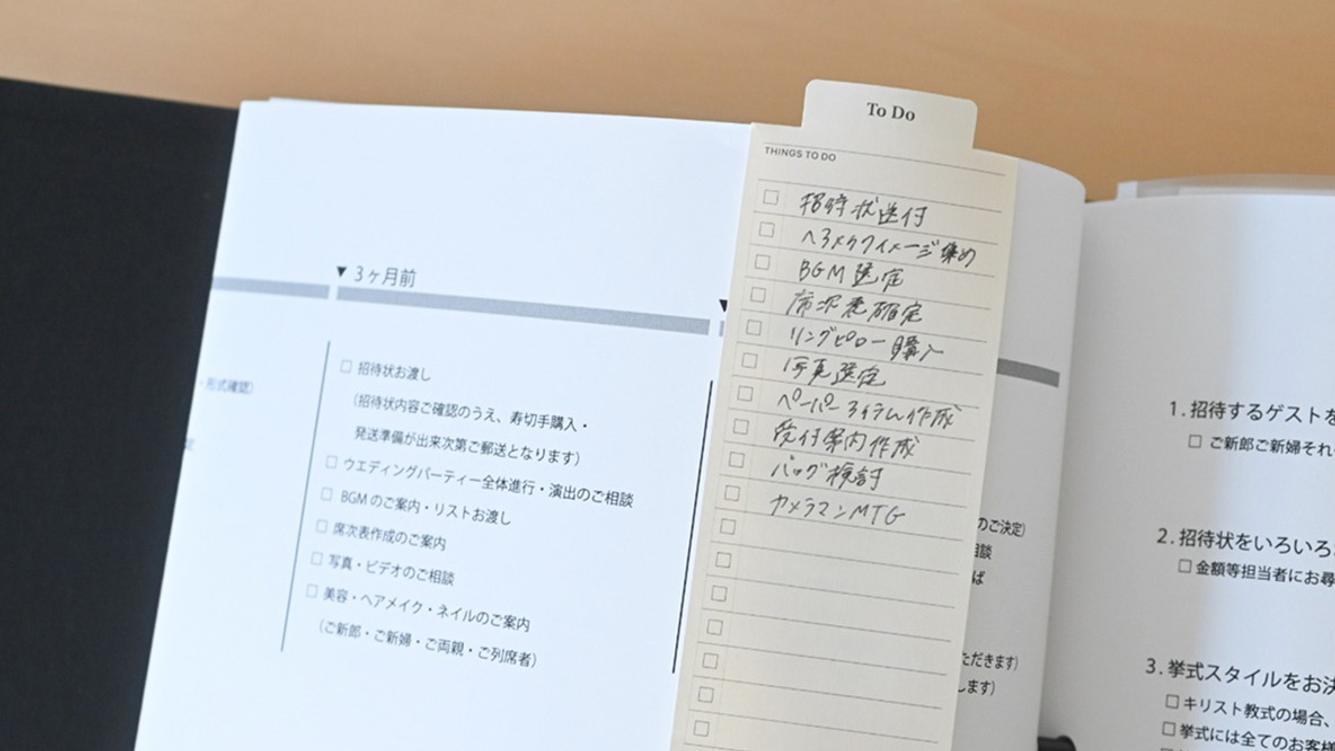 To Do
THINGS TO DO
招待状送付
ヘアメクイメージ集め
BGM選定
席次表確定
リングピロー購入
写真選定
ペーパーアイテム作成
受付案内作成
バッグ検討
カメラマンMTG
▼3ヶ月前
・形式確認)
□ 招待状お渡し
(招待状内容ご確認のうえ、寿切手購入・
発送準備が出来次第ご郵送となります)
□ ウエディングパーティー全体進行・演出のご相談
□ BGMのご案内・リストお渡し
□ 席次表作成のご案内
□ 写真・ビデオのご相談
□ 美容・ヘアメイク・ネイルのご案内
(ご新郎・ご新婦・ご両親・ご列席者)
のご決定)
談
ば
ただきます)
します)
1. 招待するゲストを
□ ご新郎ご新婦それ
2. 招待状をいろいろ
□ 金額等担当者にお尋
3. 挙式スタイルをお決
□ キリスト教式の場合、
□ 挙式には全てのお客様